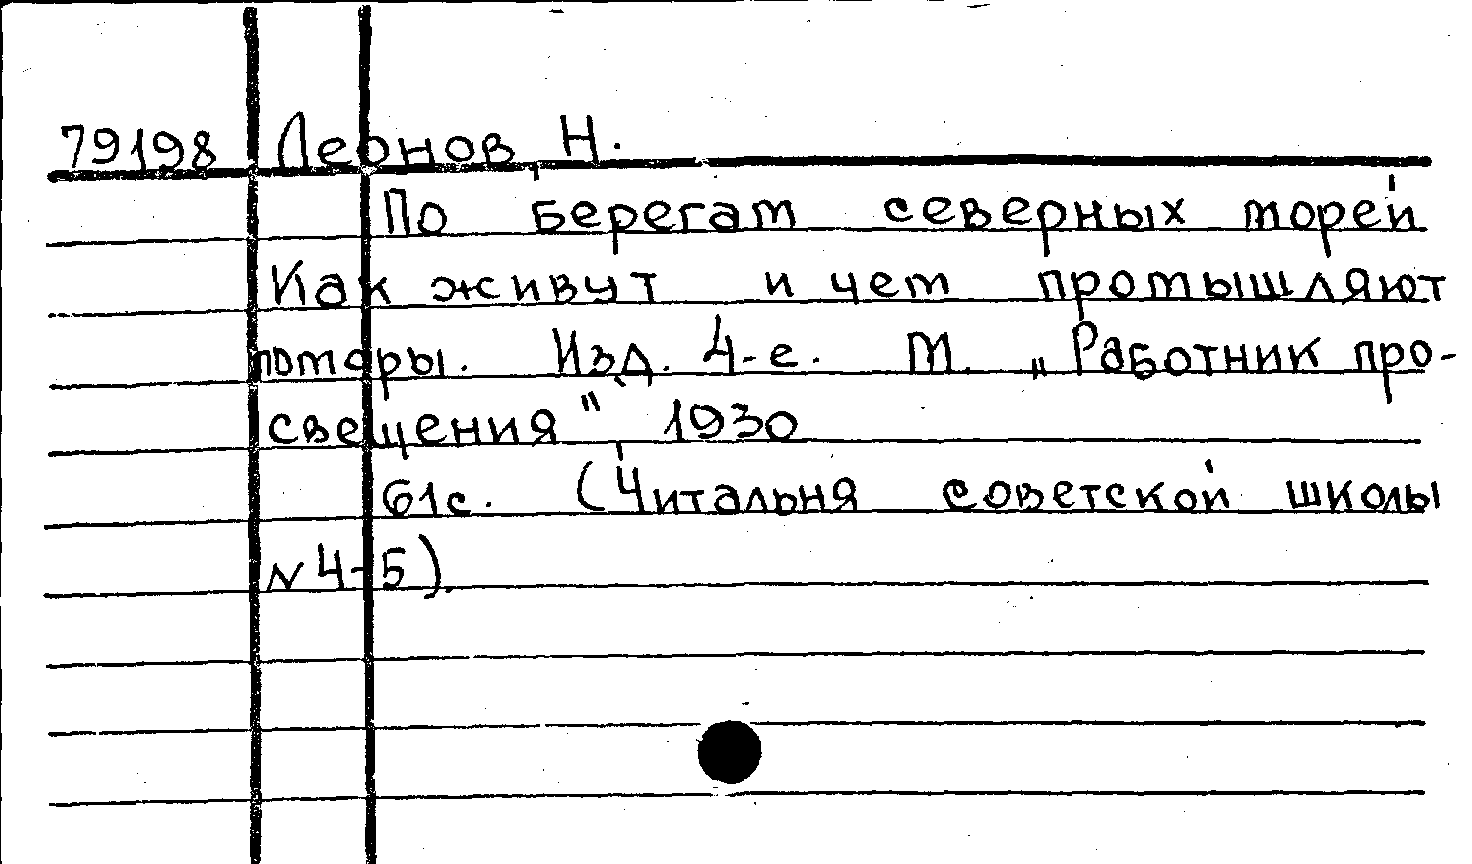 79198 Леонов, Н.
По берегам северных морей
Как живут и чем промышляют
поморы. Изд. 4-е. М. „Работник про-
свещения", 1930
61с. (Читальня советской школы
N 4-5).